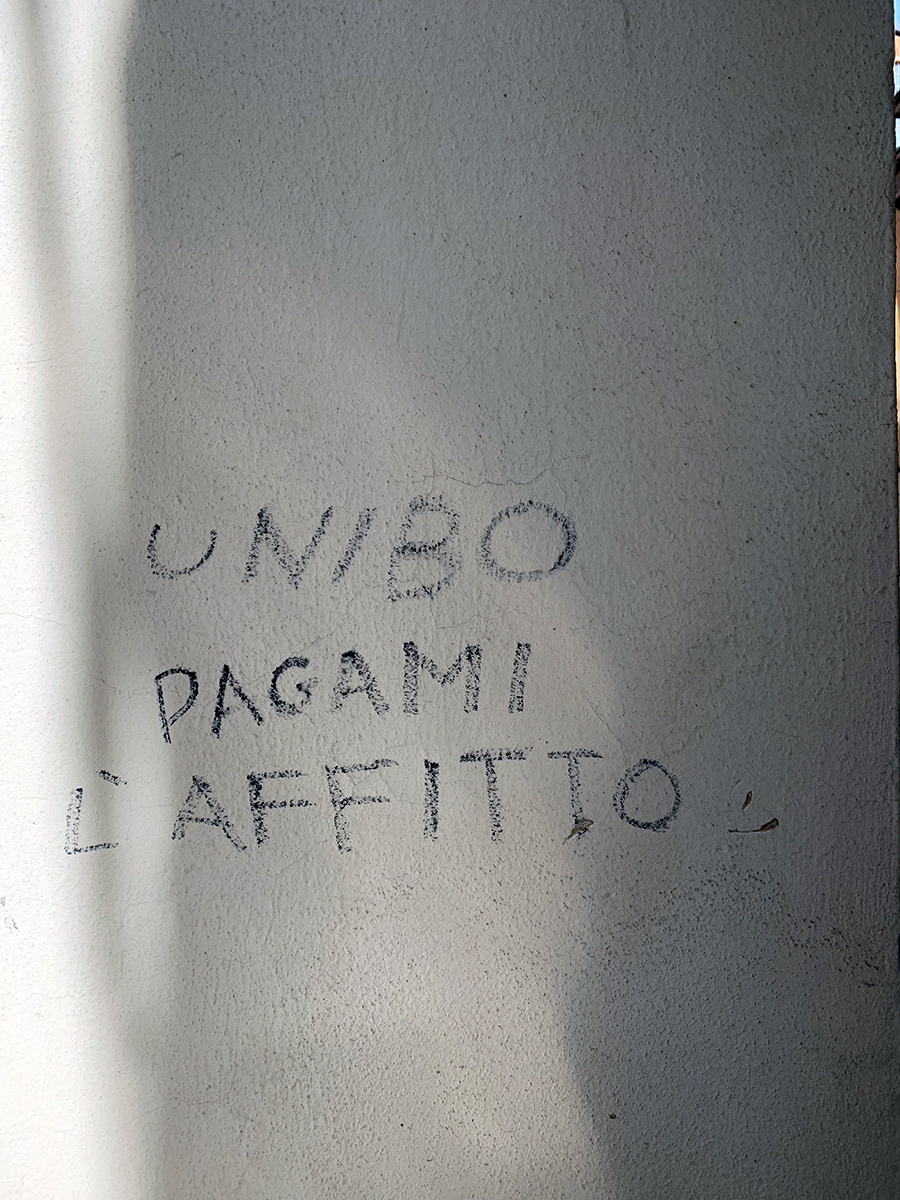 UNIBO
PAGAMI
L'AFFITTO